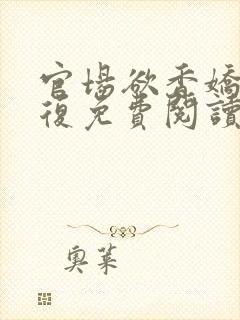 官場欲香嬌
復免費閱讀
奧萊